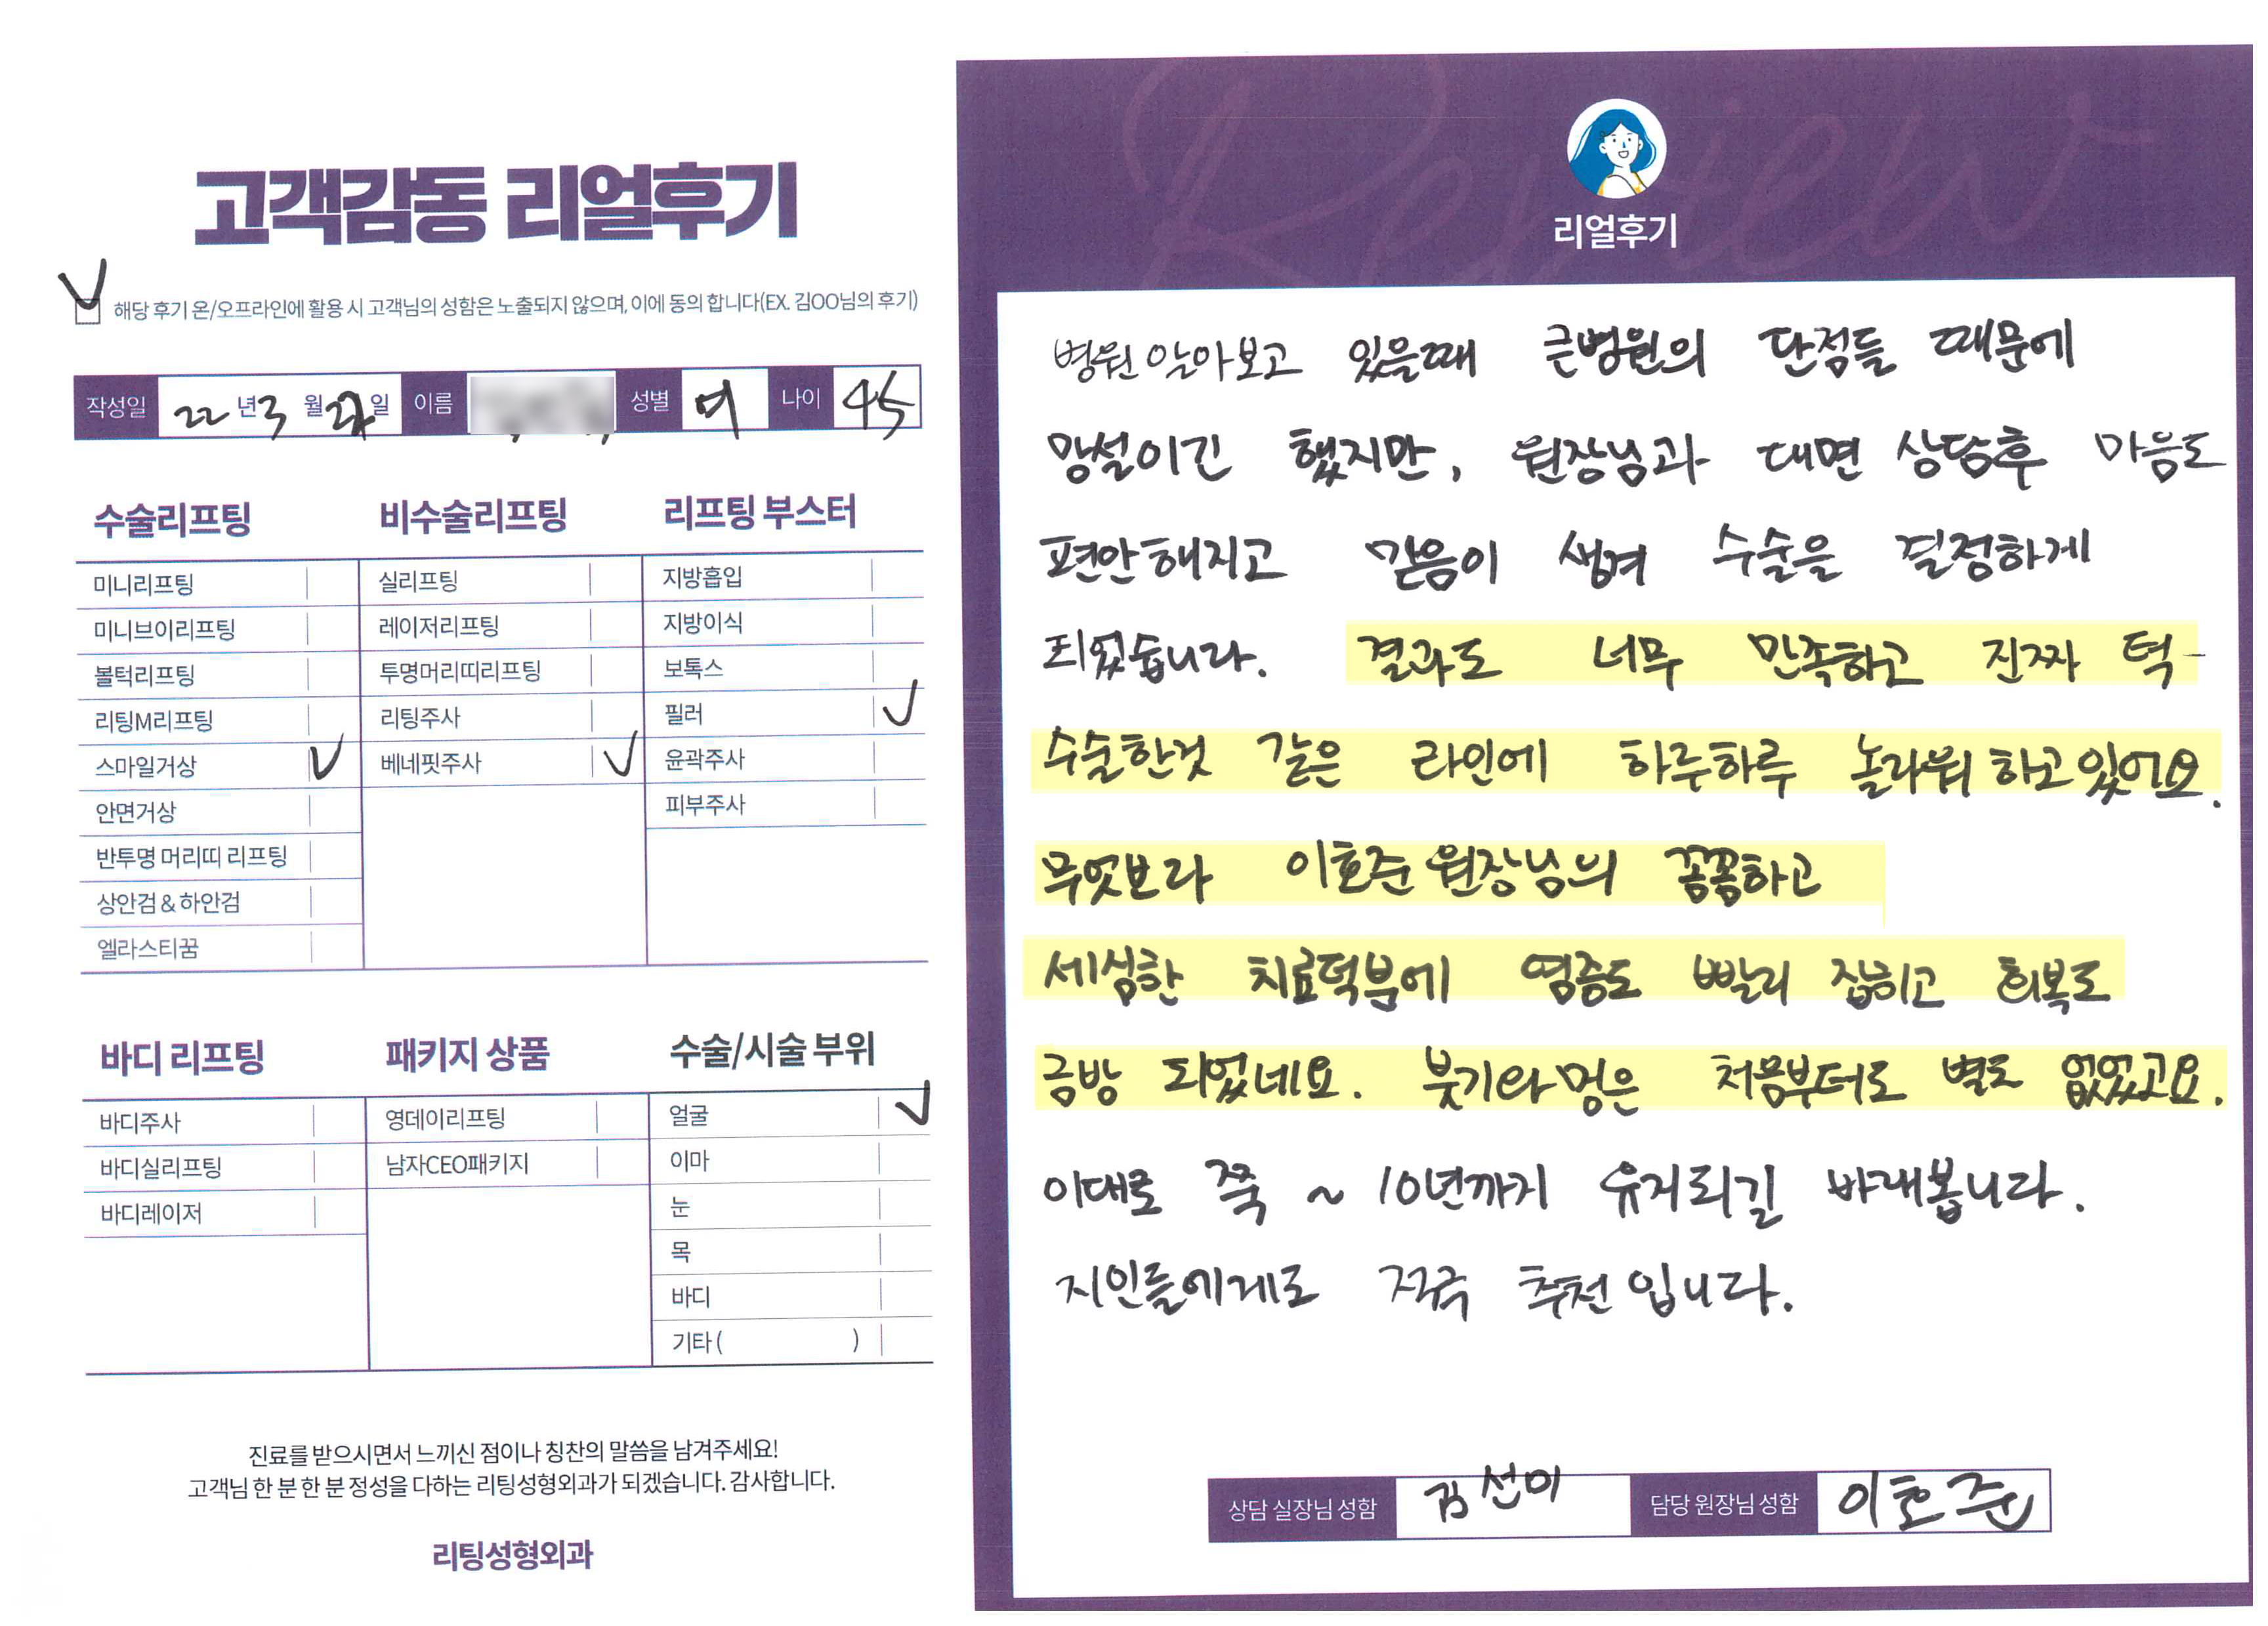 고객감동 리얼후기
해당 후기 온/오프라인에 활용 시 고객님의 성함은 노출되지 않으며, 이에 동의 합니다(EX. 김OO님의 후기)
작성일 22 년 3 월 일 이름 성별 여 나이 45
수술리프팅 비수술리프팅 리프팅 부스터
미니리프팅 실리프팅 지방흡입
미니브이리프팅 레이저리프팅 지방이식
볼턱리프팅 투명머리띠리프팅 보톡스
리팅M리프팅 리팅주사 필러 ✓
스마일거상 ✓ 베네핏주사 ✓ 윤곽주사
안면거상 피부주사
반투명 머리띠 리프팅
상안검 & 하안검
엘라스티꿈
바디 리프팅 패키지 상품 수술/시술 부위
바디주사 영데이리프팅 얼굴 ✓
바디실리프팅 남자CEO패키지 이마
바디레이저 눈
목
바디
기타 ( )
진료를 받으시면서 느끼신 점이나 칭찬의 말씀을 남겨주세요!
고객님 한 분 한 분 정성을 다하는 리팅성형외과가 되겠습니다. 감사합니다.
리팅성형외과
Review
리얼후기
병원 알아보고 있을때 큰병원의 단점들 때문에
망설이긴 했지만, 원장님과 대면 상담후 마음도
편안해지고 믿음이 생겨 수술을 결정하게
되었습니다. 결과도 너무 만족하고 진짜 턱-
수술한것 같은 라인에 하루하루 놀라워 하고있어요.
무엇보라 이호준 원장님의 꼼꼼하고
세심한 치료덕분에 염증도 빨리 잡히고 회복도
금방 되었네요. 붓기와 멍은 처음부터도 별로 없었고요.
이대로 쭉 ~ 10년까지 유지되길 바래봅니다.
지인들에게도 적극 추천입니다.
상담 실장님 성함 김선미 담당 원장님 성함 이호준